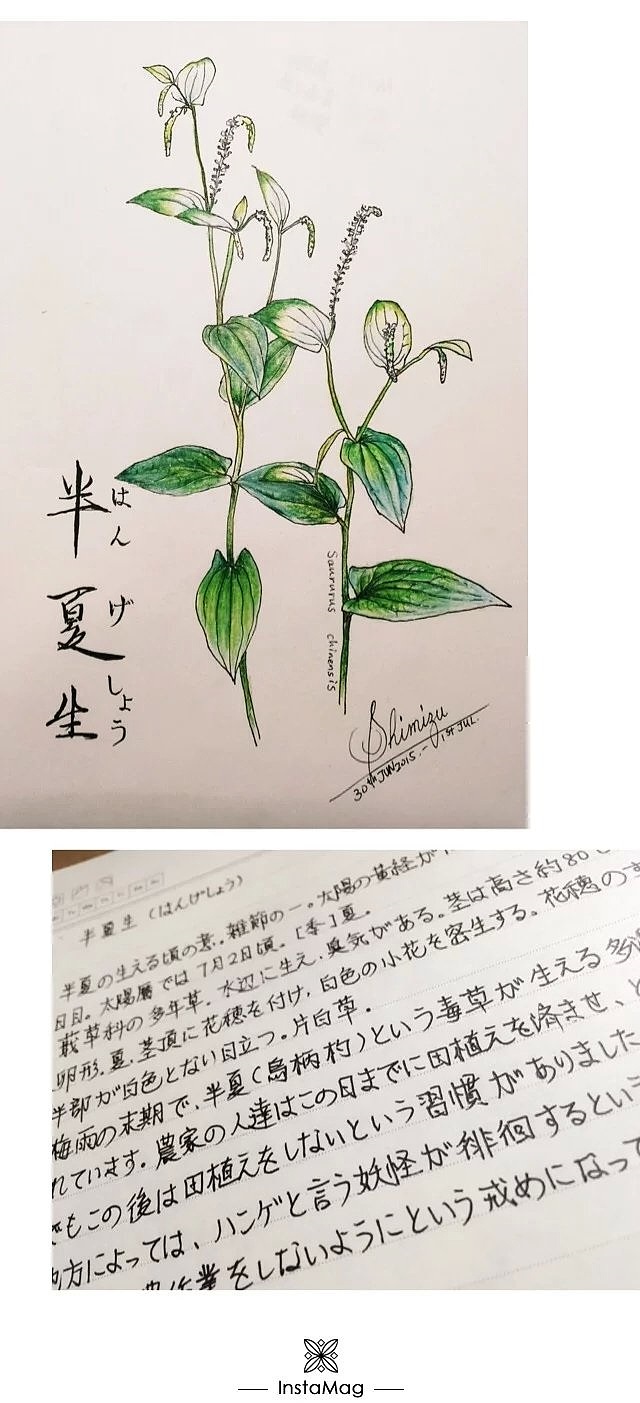 半夏生
はんげしょう
Saururus chinensis
Shimizu
30TH JUN 2015.-1ST JUL.
半夏生（はんげしょう）
半夏の生える頃の意。雑節の一。太陽の黄経が
日目。太陽暦では7月2日頃。[季]夏。
草科の多年草。水辺に生え、臭気がある。茎は高さ約80
卵形。夏、茎頂に花穂を付け、白色の小花を密生する。花穂の
半部が白色とない目立つ。片白草。
梅雨の末期で、半夏（烏柄杓）という毒草が生える多
れています。農家の人達はこの日までに田植えを済ませ、
もこの後は田植えをしないという習慣がありました
方によっては、ハンゲと言う妖怪が徘徊するとい
作業をしないようにという戒めになって
InstaMag